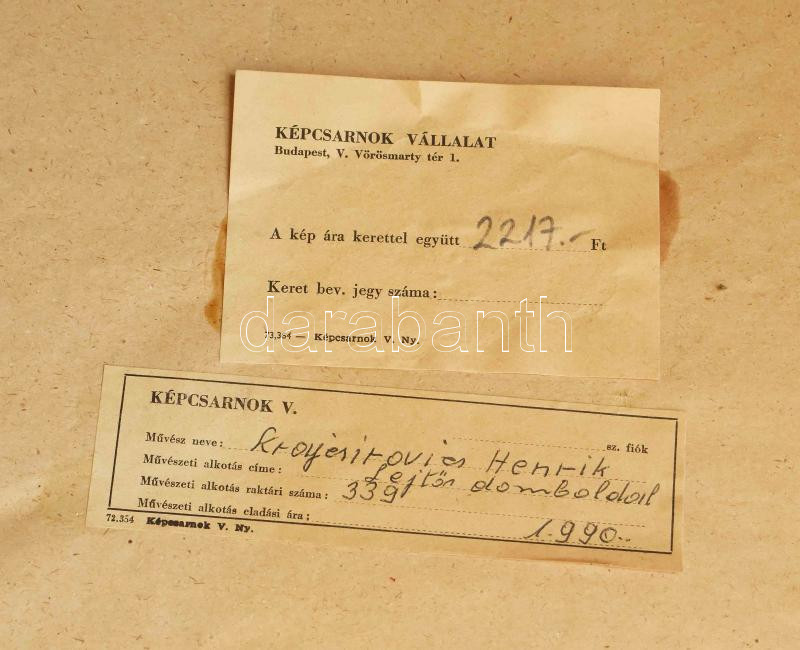 KÉPCSARNOK VÁLLALAT
Budapest, V. Vörösmarty tér 1.
A kép ára kerettel együtt 2217.- Ft
Keret bev. jegy száma:
darabanth
73,354 — Képcsarnok V. Ny.
KÉPCSARNOK V.
sz. fiók
Művész neve: Krajcsirovics Henrik
Művészeti alkotás címe: Lejtős domboldal
Művészeti alkotás raktári száma: 339
Művészeti alkotás eladási ára: 1.990..
72.354 Képcsarnok V. Ny.